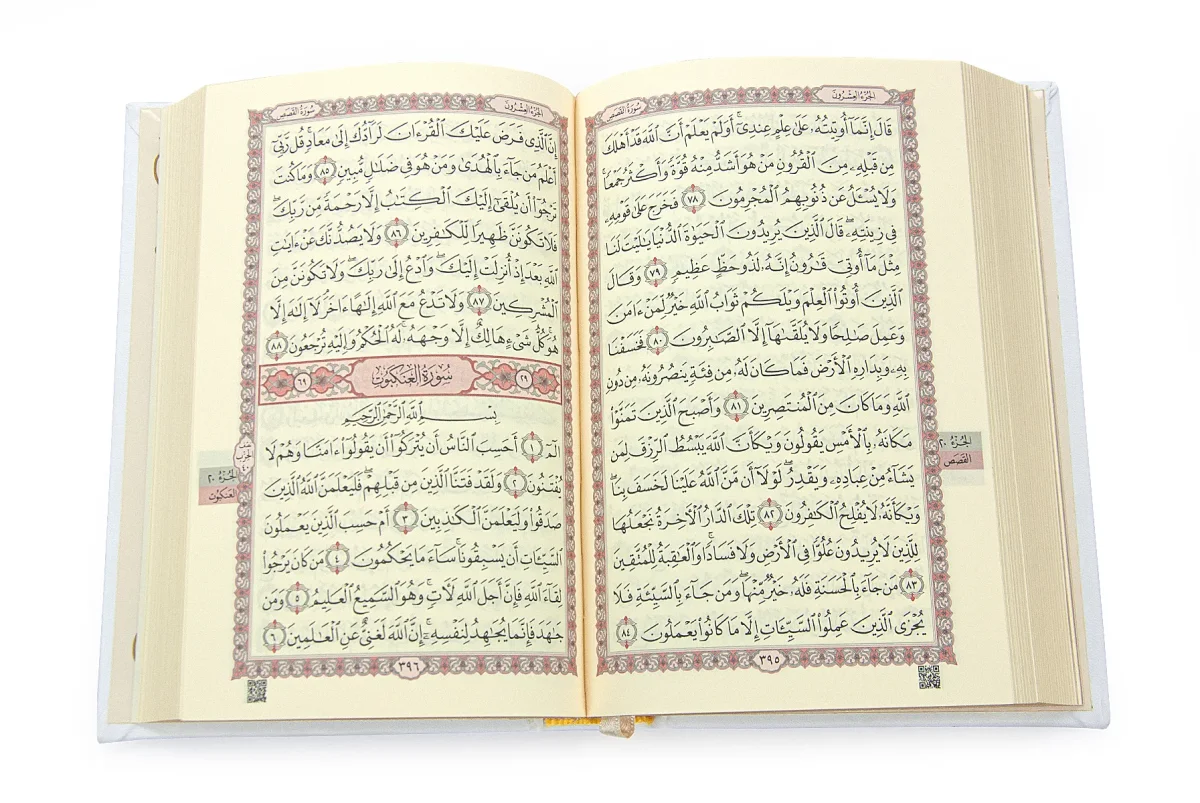 سُورَةُ القَصَصِ
الجُزْءُ العِشْرُونَ
قَالَ إِنَّمَآ أُوتِيتُهُۥ عَلَىٰ عِلْمٍ عِندِىٓ ۚ أَوَلَمْ يَعْلَمْ أَنَّ ٱللَّهَ قَدْ أَهْلَكَ
مِن قَبْلِهِۦ مِنَ ٱلْقُرُونِ مَنْ هُوَ أَشَدُّ مِنْهُ قُوَّةً وَأَكْثَرُ جَمْعًا ۚ
وَلَا يُسْـَٔلُ عَن ذُنُوبِهِمُ ٱلْمُجْرِمُونَ ٧٨ فَخَرَجَ عَلَىٰ قَوْمِهِۦ
فِى زِينَتِهِۦ ۖ قَالَ ٱلَّذِينَ يُرِيدُونَ ٱلْحَيَوٰةَ ٱلدُّنْيَا يَـٰلَيْتَ لَنَا
مِثْلَ مَآ أُوتِىَ قَـٰرُونُ إِنَّهُۥ لَذُو حَظٍّ عَظِيمٍ ٧٩ وَقَالَ
ٱلَّذِينَ أُوتُوا۟ ٱلْعِلْمَ وَيْلَكُمْ ثَوَابُ ٱللَّهِ خَيْرٌ لِّمَنْ ءَامَنَ
وَعَمِلَ صَـٰلِحًا وَلَا يُلَقَّىٰهَآ إِلَّا ٱلصَّـٰبِرُونَ ٨٠ فَخَسَفْنَا
بِهِۦ وَبِدَارِهِ ٱلْأَرْضَ فَمَا كَانَ لَهُۥ مِن فِئَةٍ يَنصُرُونَهُۥ مِن دُونِ
ٱللَّهِ وَمَا كَانَ مِنَ ٱلْمُنتَصِرِينَ ٨١ وَأَصْبَحَ ٱلَّذِينَ تَمَنَّوْا۟
مَكَانَهُۥ بِٱلْأَمْسِ يَقُولُونَ وَيْكَأَنَّ ٱللَّهَ يَبْسُطُ ٱلرِّزْقَ لِمَن
يَشَآءُ مِنْ عِبَادِهِۦ وَيَقْدِرُ ۖ لَوْلَآ أَن مَّنَّ ٱللَّهُ عَلَيْنَا لَخَسَفَ بِنَا ۖ
وَيْكَأَنَّهُۥ لَا يُفْلِحُ ٱلْكَـٰفِرُونَ ٨٢ تِلْكَ ٱلدَّارُ ٱلْـَٔاخِرَةُ نَجْعَلُهَا
لِلَّذِينَ لَا يُرِيدُونَ عُلُوًّا فِى ٱلْأَرْضِ وَلَا فَسَادًا ۚ وَٱلْعَـٰقِبَةُ لِلْمُتَّقِينَ
٨٣ مَن جَآءَ بِٱلْحَسَنَةِ فَلَهُۥ خَيْرٌ مِّنْهَا ۖ وَمَن جَآءَ بِٱلسَّيِّئَةِ فَلَا
يُجْزَى ٱلَّذِينَ عَمِلُوا۟ ٱلسَّيِّـَٔاتِ إِلَّا مَا كَانُوا۟ يَعْمَلُونَ ٨٤
٣٩٥
الجُزْءُ ٢٠
القَصَص
سُورَةُ القَصَصِ
الجُزْءُ العِشْرُونَ
إِنَّ ٱلَّذِى فَرَضَ عَلَيْكَ ٱلْقُرْءَانَ لَرَآدُّكَ إِلَىٰ مَعَادٍ ۚ قُل رَّبِّىٓ
أَعْلَمُ مَن جَآءَ بِٱلْهُدَىٰ وَمَنْ هُوَ فِى ضَلَـٰلٍ مُّبِينٍ ٨٥ وَمَا كُنتَ
تَرْجُوٓا۟ أَن يُلْقَىٰٓ إِلَيْكَ ٱلْكِتَـٰبُ إِلَّا رَحْمَةً مِّن رَّبِّكَ ۖ
فَلَا تَكُونَنَّ ظَهِيرًا لِّلْكَـٰفِرِينَ ٨٦ وَلَا يَصُدُّنَّكَ عَنْ ءَايَـٰتِ
ٱللَّهِ بَعْدَ إِذْ أُنزِلَتْ إِلَيْكَ ۖ وَٱدْعُ إِلَىٰ رَبِّكَ ۖ وَلَا تَكُونَنَّ مِنَ
ٱلْمُشْرِكِينَ ٨٧ وَلَا تَدْعُ مَعَ ٱللَّهِ إِلَـٰهًا ءَاخَرَ ۘ لَآ إِلَـٰهَ إِلَّا
هُوَ ۚ كُلُّ شَىْءٍ هَالِكٌ إِلَّا وَجْهَهُۥ ۚ لَهُ ٱلْحُكْمُ وَإِلَيْهِ تُرْجَعُونَ ٨٨
٢٩ سُورَةُ العَنكَبُوتِ ٦٩
بِسْمِ ٱللَّهِ ٱلرَّحْمَـٰنِ ٱلرَّحِيمِ
الٓمٓ ١ أَحَسِبَ ٱلنَّاسُ أَن يُتْرَكُوٓا۟ أَن يَقُولُوٓا۟ ءَامَنَّا وَهُمْ لَا
يُفْتَنُونَ ٢ وَلَقَدْ فَتَنَّا ٱلَّذِينَ مِن قَبْلِهِمْ ۖ فَلَيَعْلَمَنَّ ٱللَّهُ ٱلَّذِينَ
صَدَقُوا۟ وَلَيَعْلَمَنَّ ٱلْكَـٰذِبِينَ ٣ أَمْ حَسِبَ ٱلَّذِينَ يَعْمَلُونَ
ٱلسَّيِّـَٔاتِ أَن يَسْبِقُونَا ۚ سَآءَ مَا يَحْكُمُونَ ٤ مَن كَانَ يَرْجُوا۟
لِقَآءَ ٱللَّهِ فَإِنَّ أَجَلَ ٱللَّهِ لَـَٔاتٍ ۚ وَهُوَ ٱلسَّمِيعُ ٱلْعَلِيمُ ٥ وَمَن
جَـٰهَدَ فَإِنَّمَا يُجَـٰهِدُ لِنَفْسِهِۦٓ ۚ إِنَّ ٱللَّهَ لَغَنِىٌّ عَنِ ٱلْعَـٰلَمِينَ ٦
٣٩٦
الحِزْب
٤٠
الجُزْءُ ٢٠
العَنكَبُوت